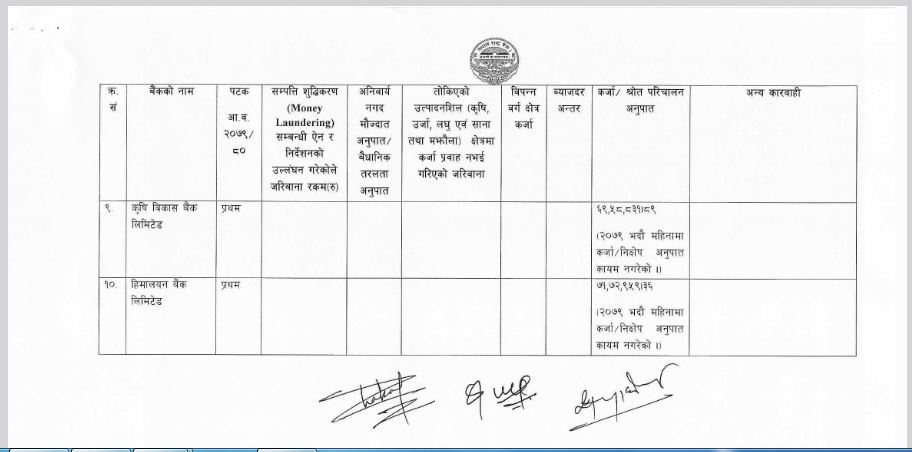 क्र. सं
बैंकको नाम
पटक आ.व. २०७९/ ८०
सम्पत्ति शुद्धिकरण (Money Laundering) सम्बन्धी ऐन र निर्देशनको उल्लंघन गरेकोले जरिवाना रकम(रु)
अनिवार्य नगद मौज्दात अनुपात/ बैधानिक तरलता अनुपात
तोकिएको उत्पादनशिल (कृषि, उर्जा, लघु एवं साना तथा मझौला) क्षेत्रमा कर्जा प्रवाह नभई गरिएको जरिवाना
बिपन्न बर्ग क्षेत्र कर्जा
ब्याजदर अन्तर
कर्जा/ श्रोत परिचालन अनुपात
अन्य कारवाही
९.
कृषि विकास बैंक
लिमिटेड
प्रथम
६९,५८,८३१।८९
(२०७९ भदौ महिनामा
कर्जा/निक्षेप अनुपात
कायम नगरेको ।)
१०.
हिमालयन बैंक
लिमिटेड
प्रथम
७१,७२,९५९।३६
(२०७९ भदौ महिनामा
कर्जा/निक्षेप अनुपात
कायम नगरेको ।)